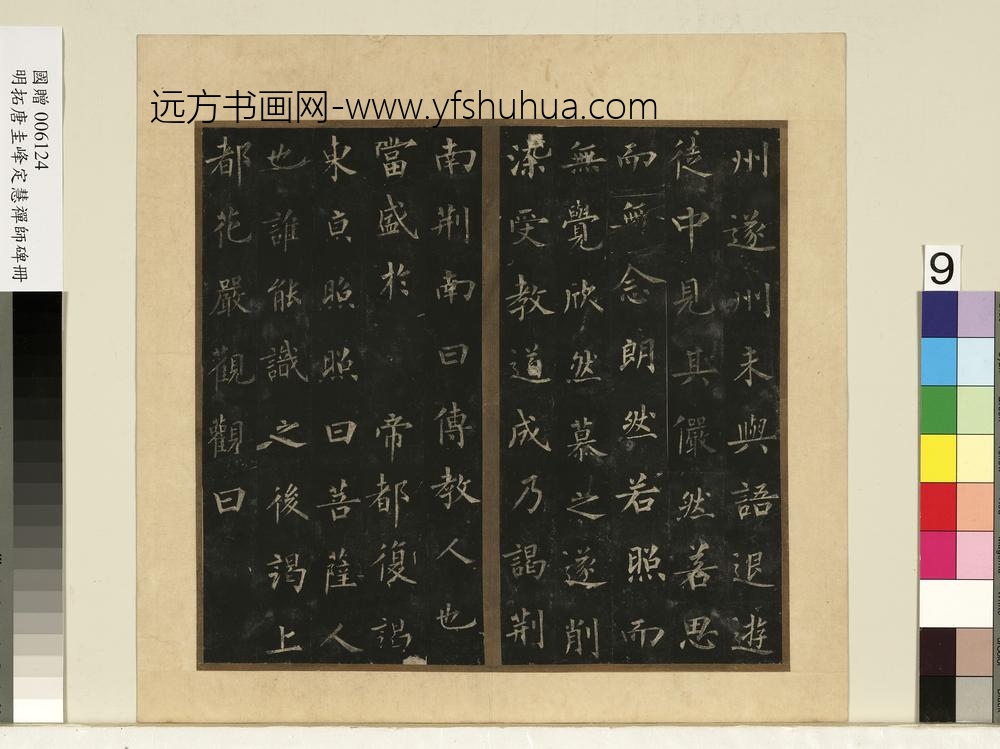 远方书画网-www.yfshuhua.com
國贈 006124
明拓唐圭峰定慧禪師碑冊
9
州遂州未與語退遊
徒中見其儼然若思
而無念朗然若照而
無覺欣然慕之遂削
染受教道成乃謁荆
南荆南曰傳教人也
當盛於帝都復謁
東京照照曰菩薩人
也誰能識之後謁上
都花嚴觀觀曰